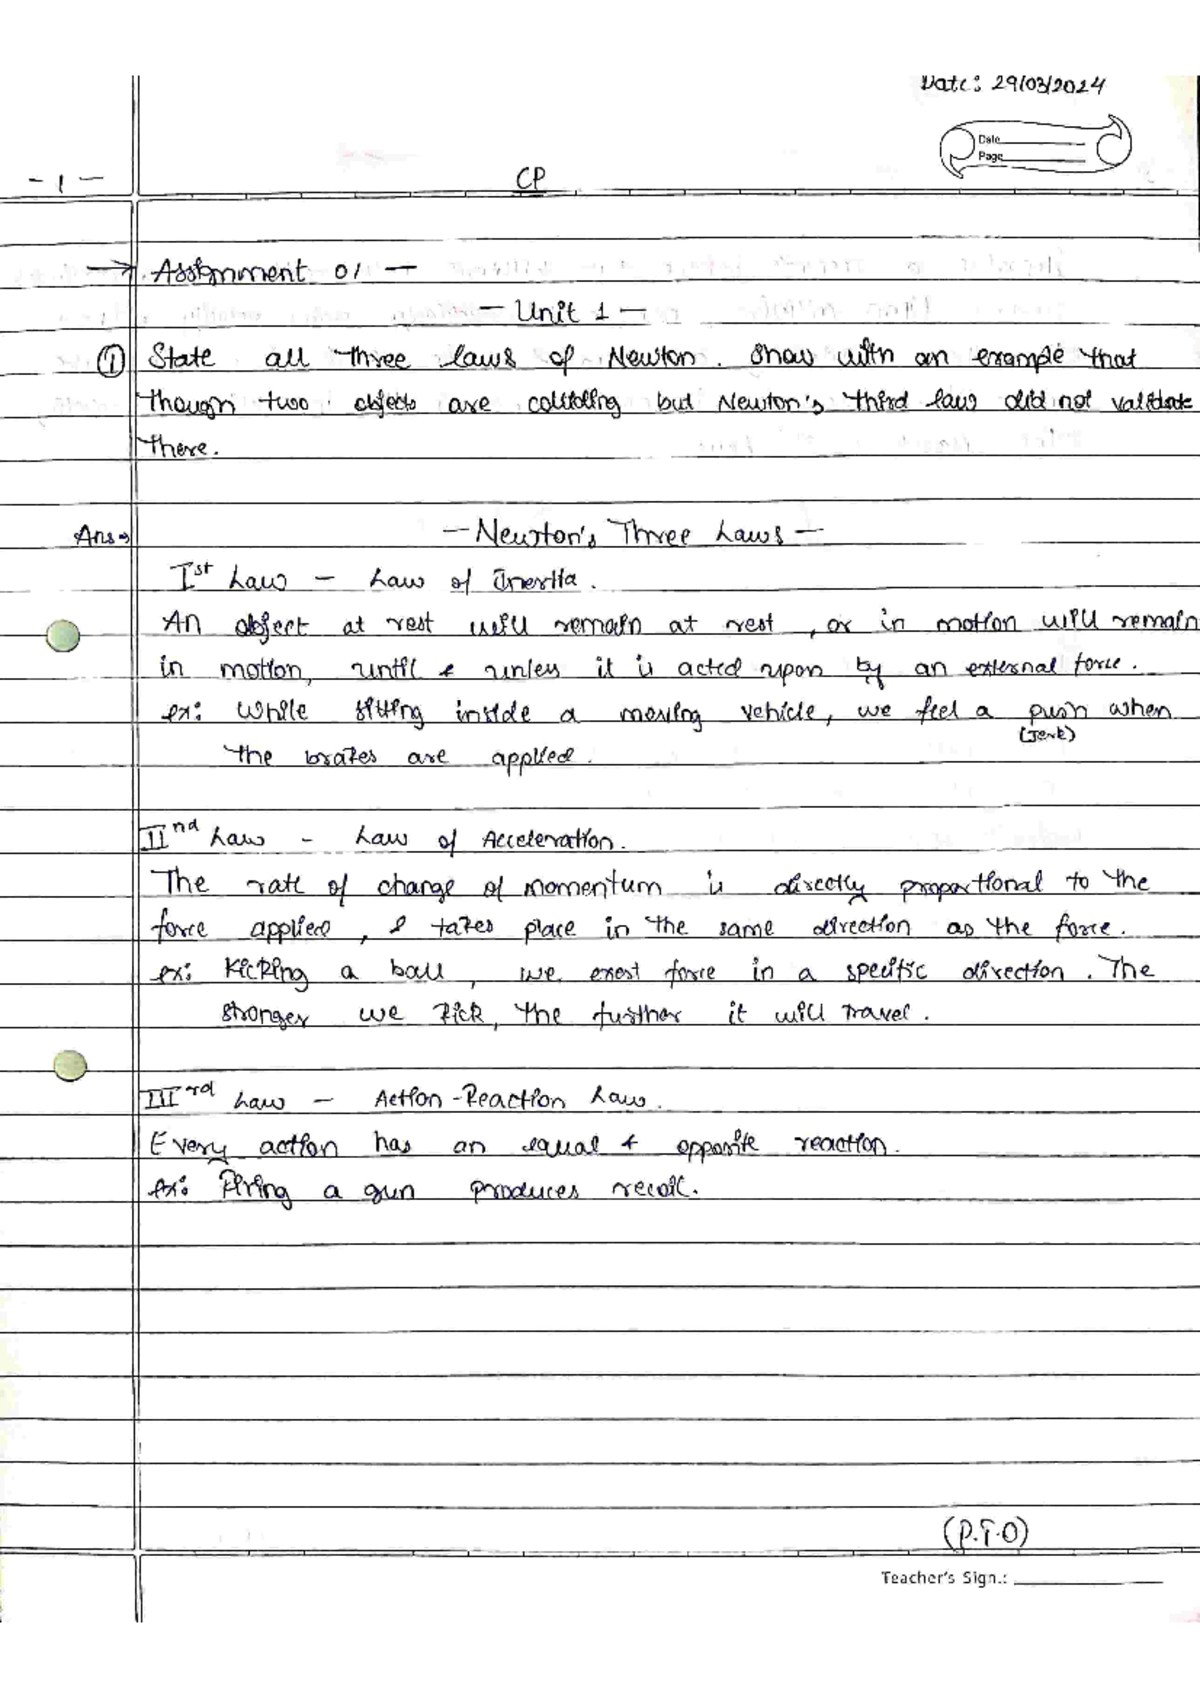 Date: 29/03/2024
Date
Page
- 1 -
CP
→ Assignment 01 —
— Unit 1 —
① State all three laws of Newton. Show with an example that
though two objects are colliding but Newton's third law did not validate
there.
Ans→
— Newton's Three Laws —
Ist Law — Law of Inertia.
An object at rest will remain at rest, or in motion will remain
in motion, until & unless it is acted upon by an external force.
ex: While sitting inside a moving vehicle, we feel a push when
(Jerk)
the brakes are applied.
IInd Law - Law of Acceleration.
The rate of change of momentum is directly proportional to the
force applied, & takes place in the same direction as the force.
ex: Kicking a ball, we exert force in a specific direction. The
stronger we kick, the further it will travel.
IIIrd Law — Action-Reaction Law.
Every action has an equal & opposite reaction.
Ex: Firing a gun produces recoil.
(P.T.O)
Teacher's Sign.: